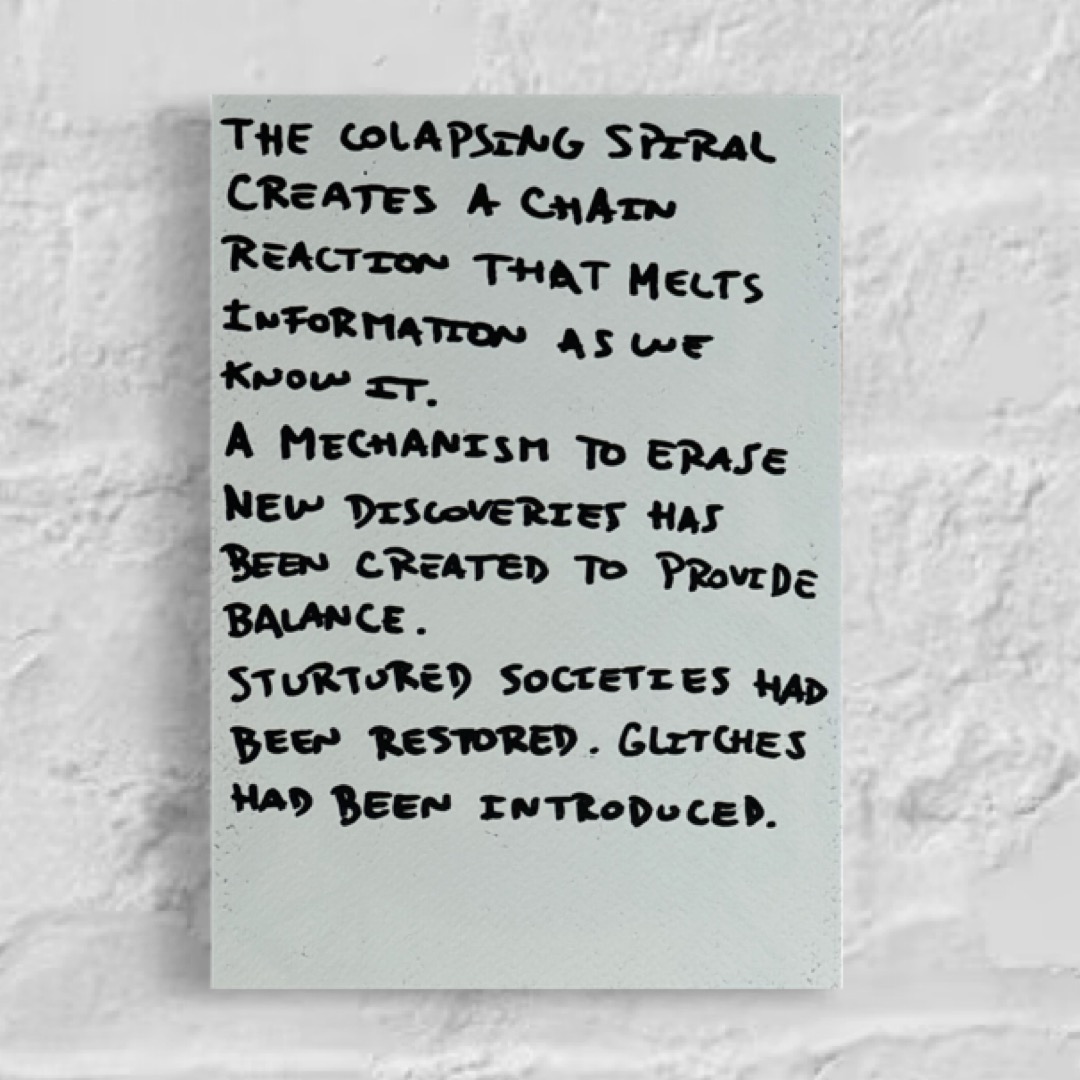 THE COLAPSING SPIRAL
CREATES A CHAIN
REACTION THAT MELTS
INFORMATION AS WE
KNOW IT.
A MECHANISM TO ERASE
NEW DISCOVERIES HAS
BEEN CREATED TO PROVIDE
BALANCE.
STURTURED SOCIETIES HAD
BEEN RESTORED. GLITCHES
HAD BEEN INTRODUCED.